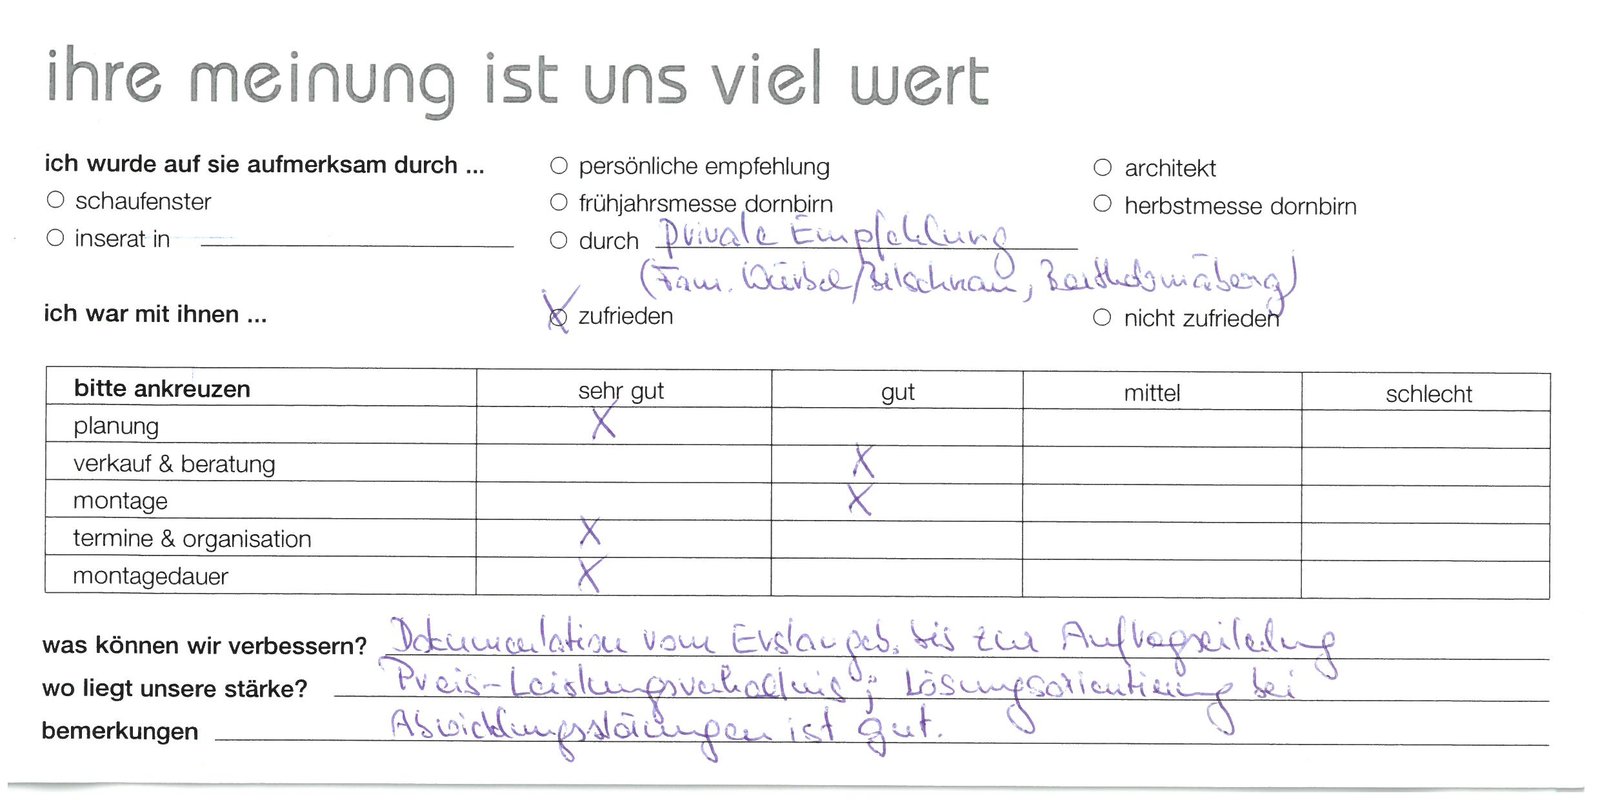 ihre meinung ist uns viel wert
ich wurde auf sie aufmerksam durch ... ○ persönliche empfehlung ○ architekt
○ schaufenster ○ frühjahrsmesse dornbirn ○ herbstmesse dornbirn
○ inserat in ○ durch Private Empfehlung
(Fam. Bartholomäberg)
ich war mit ihnen ... X zufrieden ○ nicht zufrieden
bitte ankreuzen sehr gut gut mittel schlecht
planung X
verkauf & beratung X
montage X
termine & organisation X
montagedauer X
was können wir verbessern? Dokumentation vom Erstangeb. bis zur Auftragserteilung
wo liegt unsere stärke? Preis-Leistungsverhältnis; Lösungsorientierung bei
bemerkungen Abwicklungsstörungen ist gut.